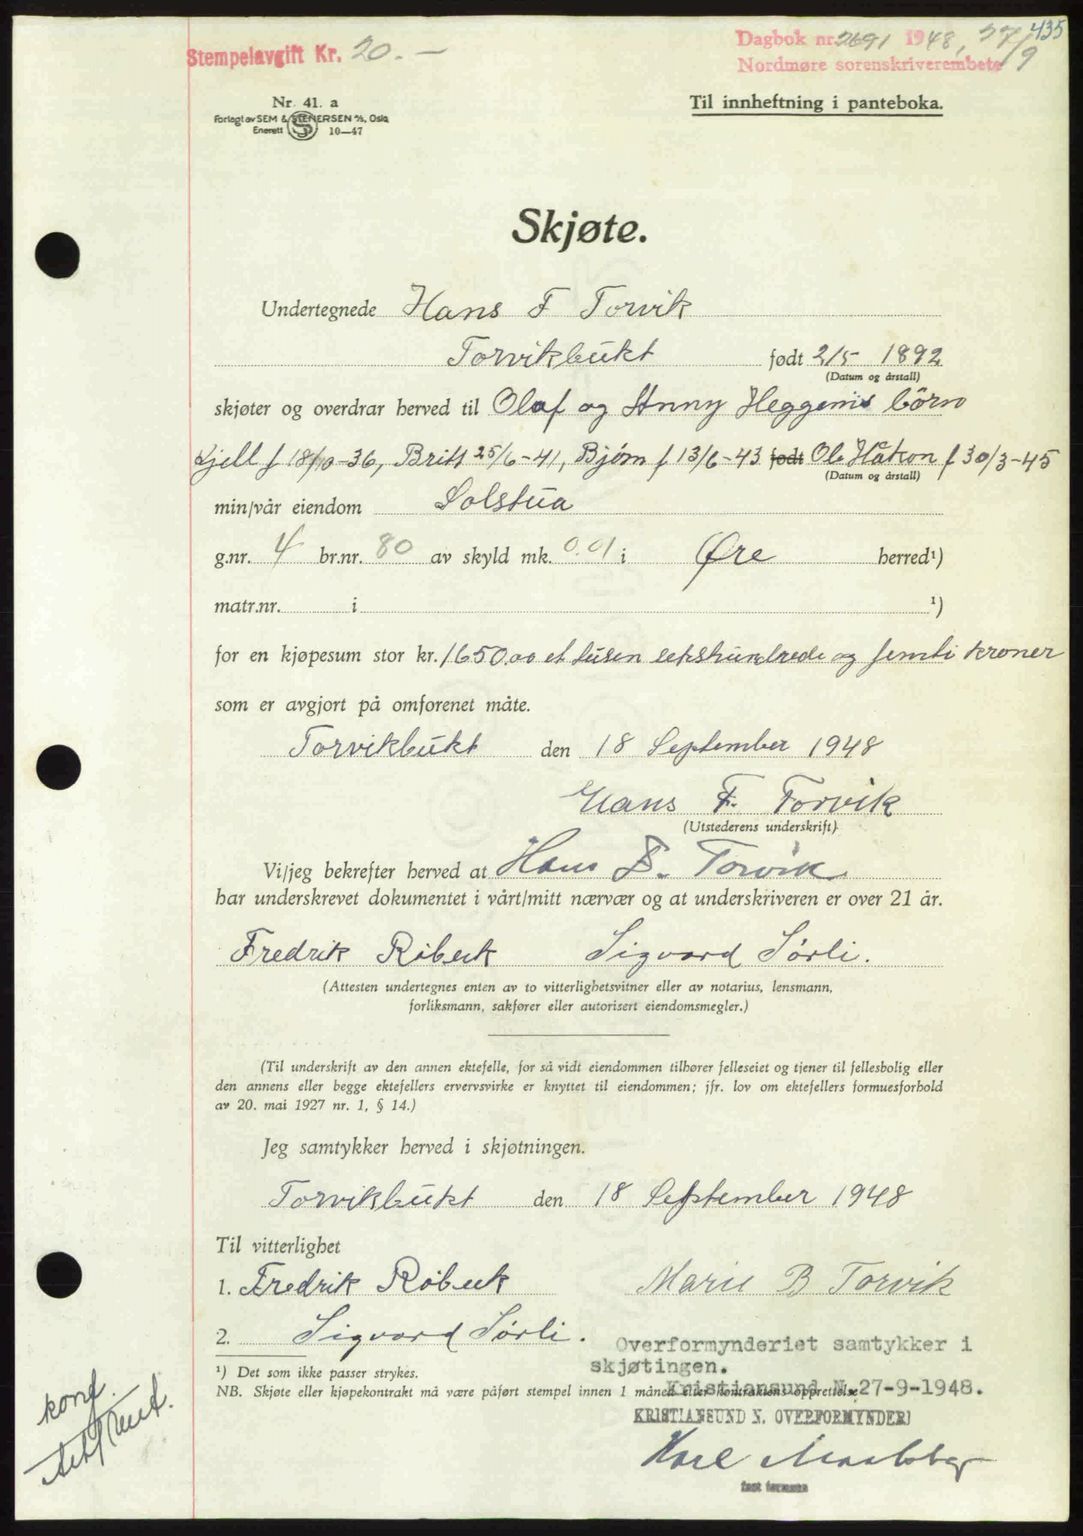 435
Stempelavgift Kr. 20.-
Dagbok nr. 2691 1948, 27/9
Nordmøre sorenskriverembete
Nr. 41. a
Forlagt av SEM & STENERSEN A/S, Oslo
Enerett 10—47
Til innheftning i panteboka.
Skjøte.
Undertegnede Hans F Torvik
Torvikbukt født 2/5 1892
(Datum og årstall)
skjøter og overdrar herved til Olaf og Anny Heggems börn
Kjell f 18/10-36, Britt 25/6-41, Bjørn f 13/6-43 født Ole Håkon f 30/3-45
(Datum og årstall)
min/vår eiendom Solstua
g.nr. 4 br.nr. 80 av skyld mk. 0.01 i Øre herred¹)
matr.nr. i ¹)
for en kjøpesum stor kr. 1650.00 et tusen sekshundrede og femti kroner
som er avgjort på omforenet måte.
Torvikbukt den 18 September 1948
Hans F. Torvik
(Utstederens underskrift)
Vi/jeg bekrefter herved at Hans F. Torvik
har underskrevet dokumentet i vårt/mitt nærvær og at underskriveren er over 21 år.
Fredrik Røbekk Sigvard Sørli.
(Attesten undertegnes enten av to vitterlighetsvitner eller av notarius, lensmann,
forliksmann, sakfører eller autorisert eiendomsmegler.)
(Til underskrift av den annen ektefelle, for så vidt eiendommen tilhører felleseiet og tjener til fellesbolig eller
den annens eller begge ektefellers ervervsvirke er knyttet til eiendommen; jfr. lov om ektefellers formuesforhold
av 20. mai 1927 nr. 1, § 14.)
Jeg samtykker herved i skjøtningen.
Torvikbukt den 18 September 1948
Til vitterlighet
1. Fredrik Røbekk Marie B Torvik
2. Sigvard Sørli.
Overformynderiet samtykker i
skjøtingen.
¹) Det som ikke passer strykes.
NB. Skjøte eller kjøpekontrakt må være påført stempel innen 1 måned efter kontraktens opprettelse
Kristiansund N. 27-9-1948.
KRISTIANSUND N. OVERFORMYNDERI
Karl
fast formann
konf.